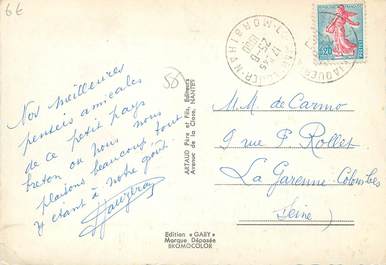 6€
55
Nos meilleures
pensées amicales
de ce petit pays
breton où nous nous
plaisons beaucoup, tout
y étant à notre goût.
ARTAUD Père et Fils, Éditeurs
Avenue de la Close, NANTES
Edition « GABY »
Marque Déposée
BROMOCOLOR
MORBIHAN
17 H 45
25-6
1960
0,20
M.M. de Carmo
9 rue F. Rollet
La Garenne-Colombes
(Seine)